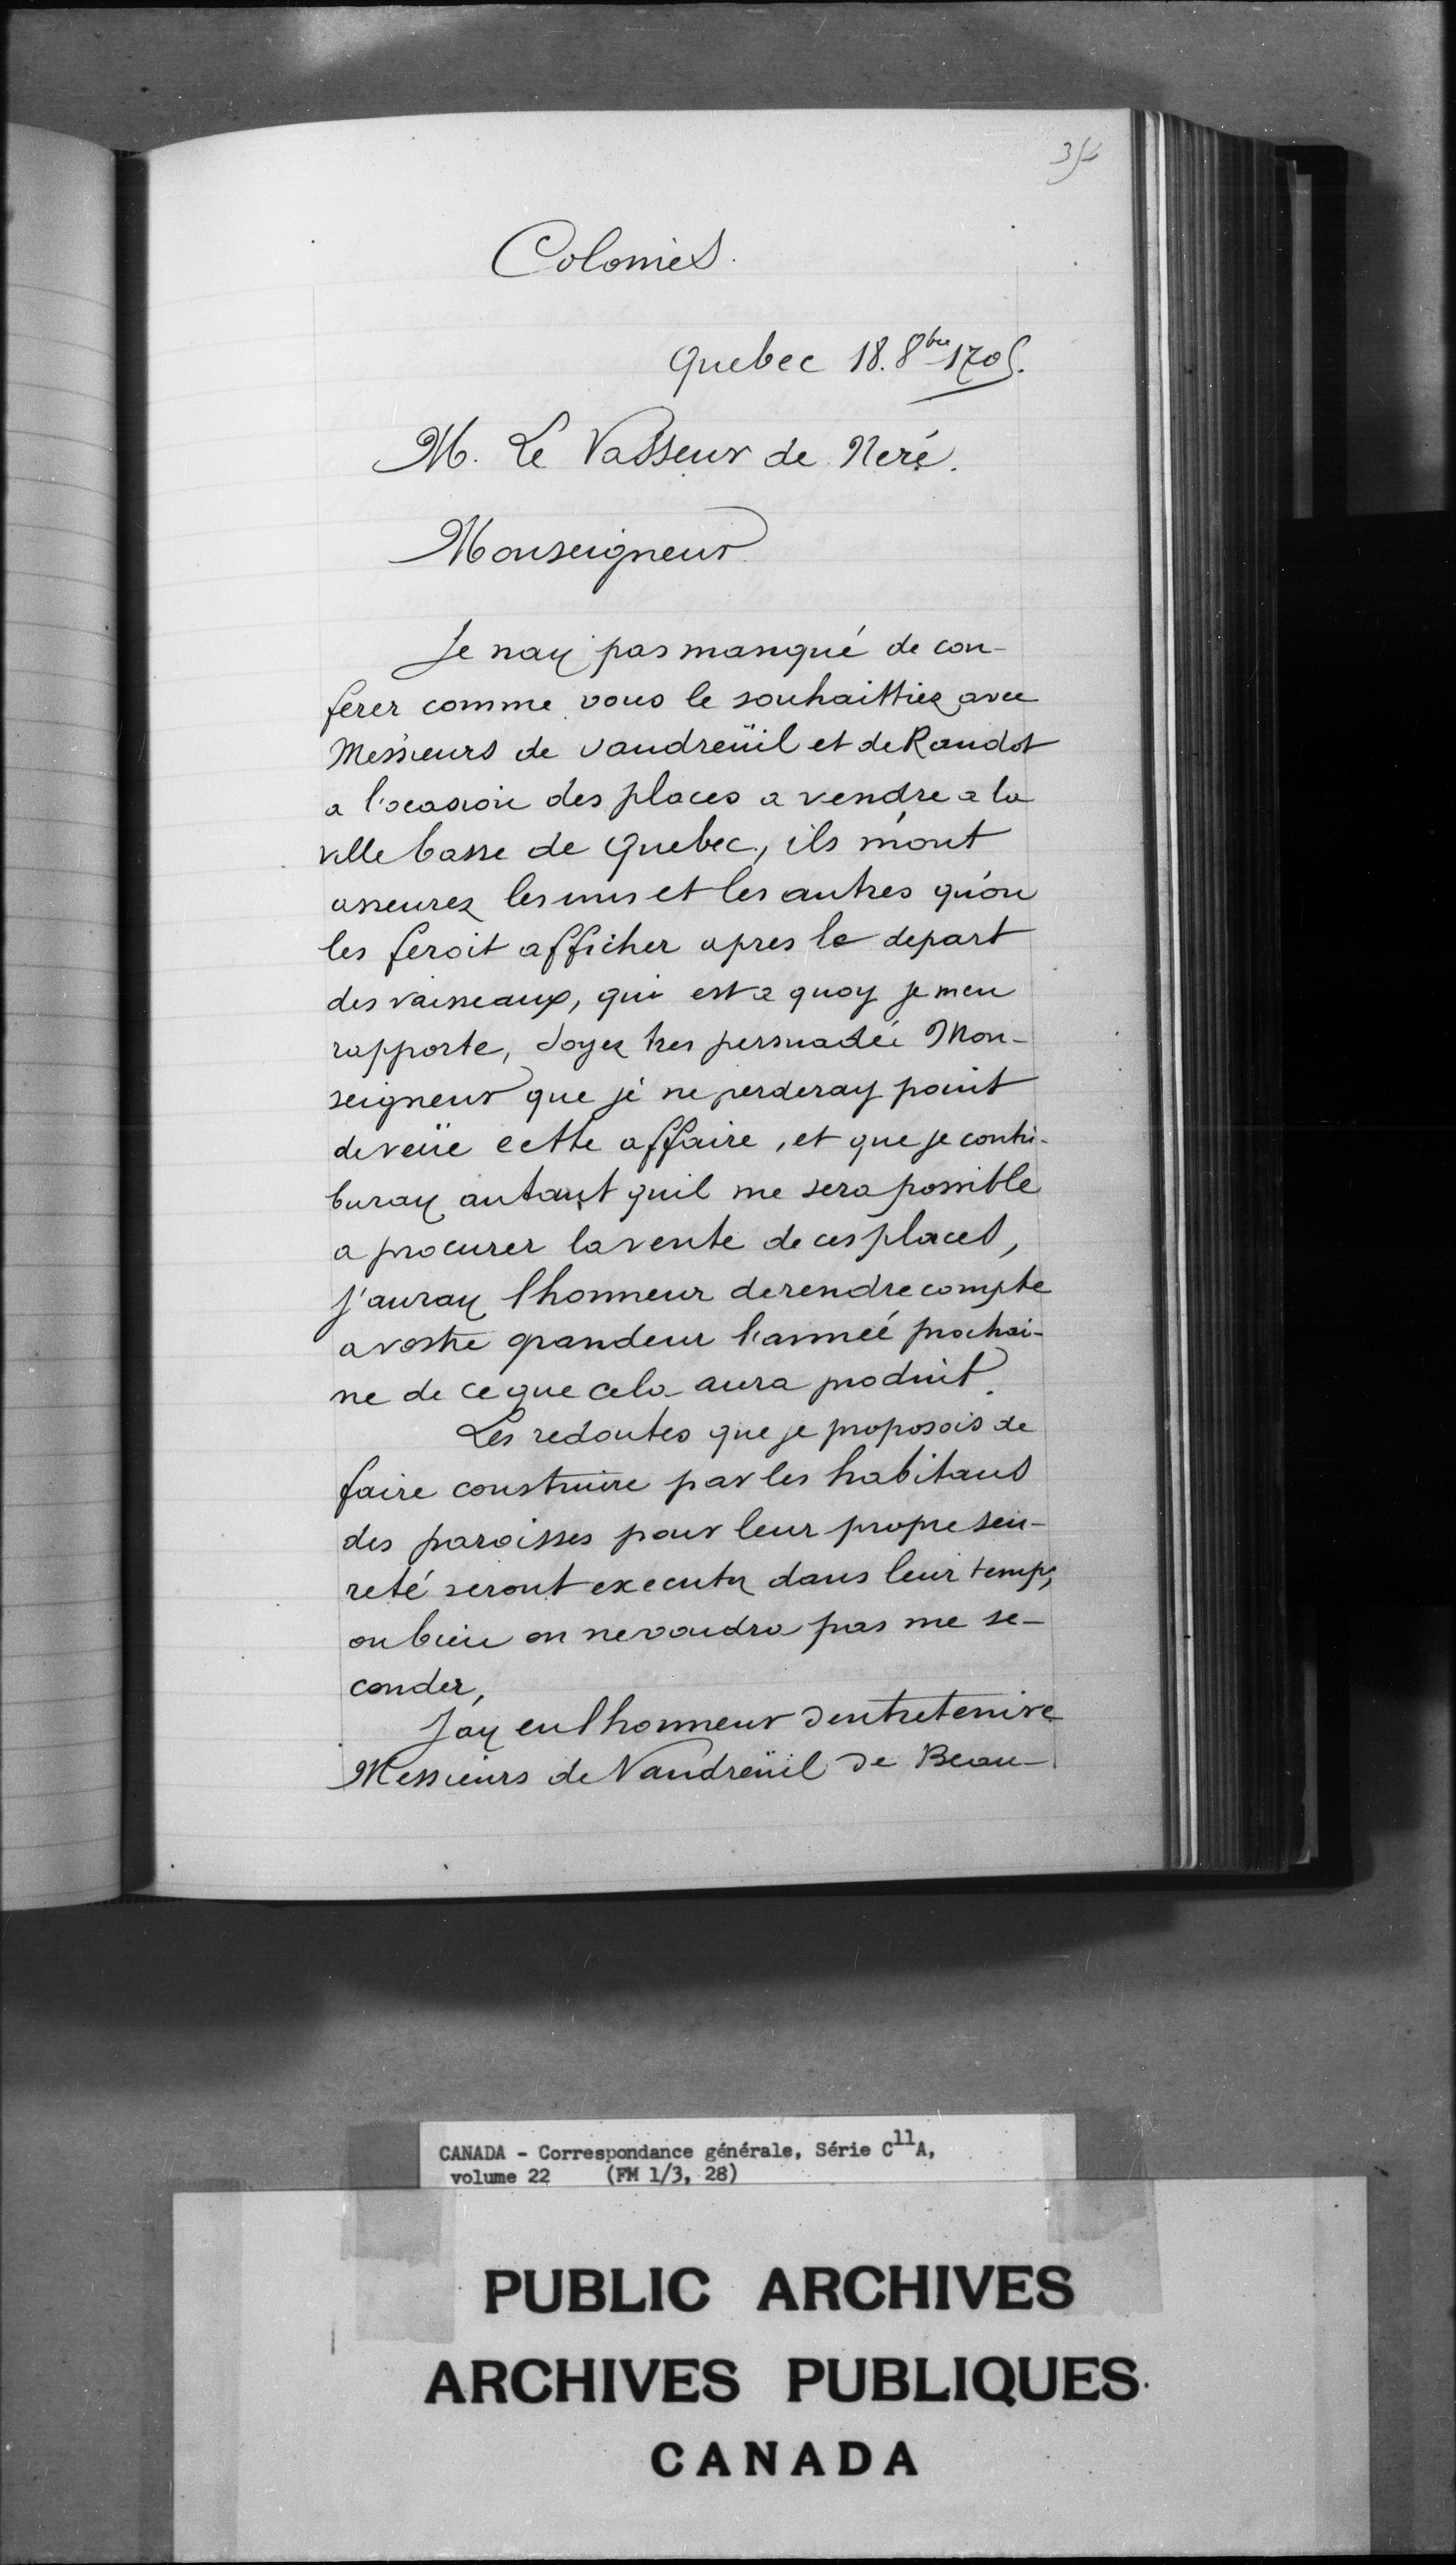 Colonies.
Quebec 18. 8bre 1705.
M. Le Vasseur de Neré.
Monseigneur
Je nay pas manqué de con-
ferer comme vous le souhaittiez avec
Messieurs de vaudreüil et de Raudot
a l'ocasion des places a vendre a la
ville basse de Quebec, ils m'ont
asseurez les uns et les autres qu'on
les feroit afficher apres le depart
des vaisseaux, qui est a quoy je men
rapporte, soyez tres persuadéé Mon-
seigneur que je ne perderay point
de veüe cette affaire, et que je contri-
buray autant quil me sera possible
a procurer la vente de ces places,
j'auray lhonneur de rendre compte
a vostre grandeur l'anneé prochai-
ne de ce que cela aura produit.
Les redoutes que je proposois de
faire construire par les habitans
des paroisses pour leur propre seu-
reté seront executez dans leur temps,
ou bien on ne voudra pas me se-
conder,
Jay eu lhonneur dentretenire
Messieurs de Vaudreüil de Beau-
CANADA - Correspondance générale, Série C11A,
volume 22 (FM 1/3, 28)
PUBLIC ARCHIVES
ARCHIVES PUBLIQUES
CANADA